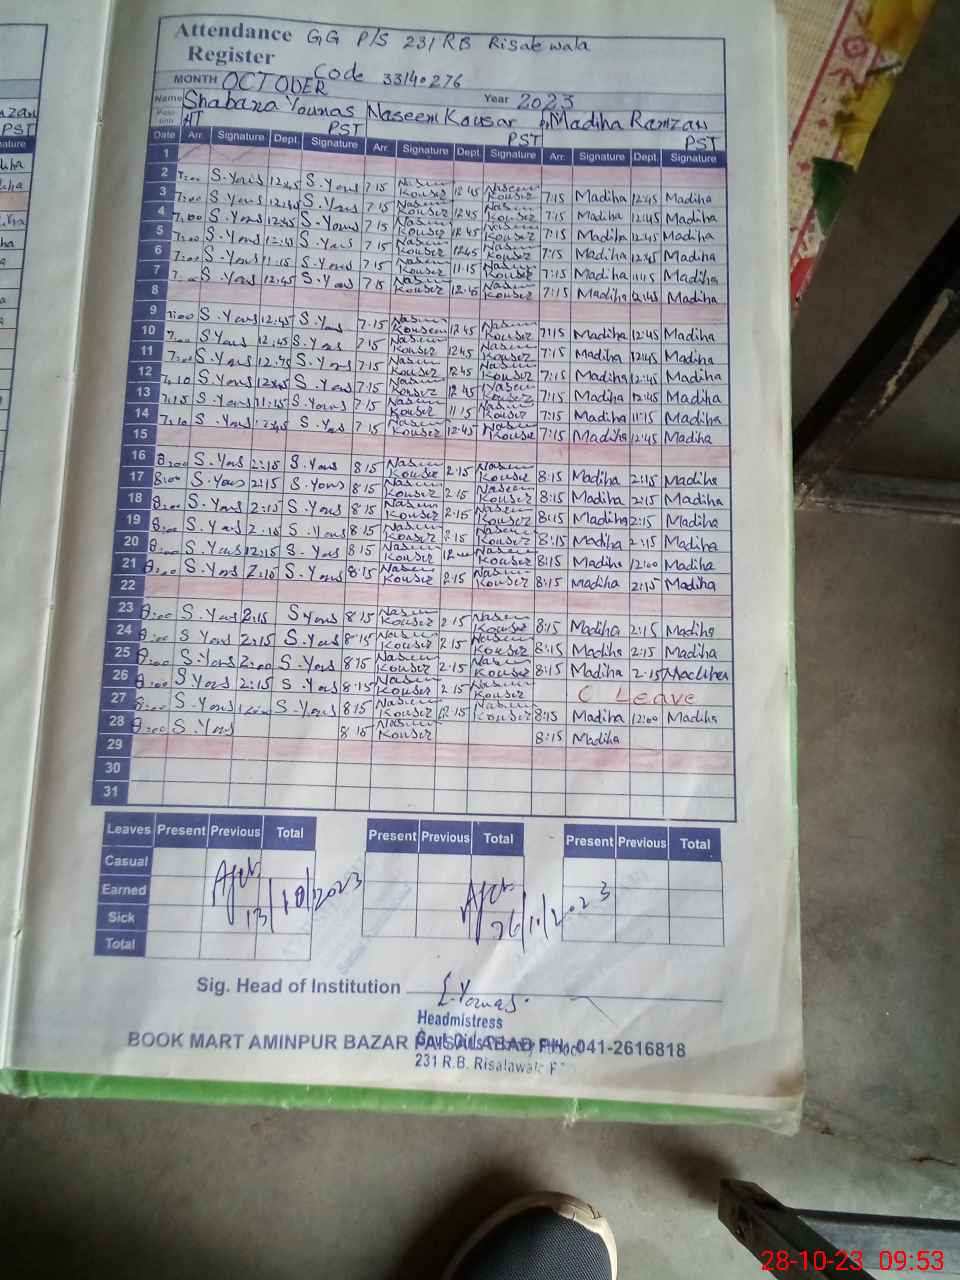 Attendance GG P/S 231 RB Risalewala
Register Code 33140276
MONTH OCTOBER Year 2023
Name Shabana Younas Naseem Kousar Madiha Ramzan
HT PST PST PST
Date Arr. Signature Dept. Signature Arr. Signature Dept. Signature Arr. Signature Dept. Signature
1
2 7:00 S.Youis 12:45 S.Yous 7 15 Naseem Kouser 12 45 Naseem Kouser 7:15 Madiha 12:45 Madiha
3 7:00 S.Yous 12:45 S.Yous 7 15 Naseem Kouser 12 45 Naseem Kouser 7:15 Madiha 12:45 Madiha
4 7:00 S.Yous 12:45 S.Yous 7 15 Naseem Kouser 12 45 Naseem Kouser 7:15 Madiha 12:45 Madiha
5 7:00 S.Yous 12:45 S.Yous 7 15 Naseem Kouser 12 45 Naseem Kouser 7:15 Madiha 12:45 Madiha
6 7:00 S.Yous 11:15 S.Yous 7 15 Naseem Kouser 11 15 Naseem Kouser 7:15 Madiha 11:15 Madiha
7 S.Yous 12:45 S.Yous 7 15 Naseem Kouser 12 45 Naseem Kouser 7:15 Madiha 12:45 Madiha
8
9 7:00 S.Yous 12:45 S.Yous 7 15 Naseem Kouseen 12 45 Naseem Kouser 7:15 Madiha 12:45 Madiha
10 S.Yous 12:45 S.Yous 7 15 Naseem Kouser 12 45 Naseem Kouser 7:15 Madiha 12:45 Madiha
11 7:00 S.Yous 12:45 S.Yous 7 15 Naseem Kouser 12 45 Naseem Kouser 7:15 Madiha 12:45 Madiha
12 7:10 S.Yous 12:45 S.Yous 7 15 Naseem Kouser 12 45 Naseem Kouser 7:15 Madiha 12:45 Madiha
13 7:15 S.Yous 11:15 S.Yous 7 15 Naseem Kouser 11 15 Naseem Kouser 7:15 Madiha 11:15 Madiha
14 7:10 S.Yous 12:45 S.Yous 7 15 Naseem Kouser 12:45 Naseem Kouser 7:15 Madiha 12:45 Madiha
15
16 8:00 S.Yous 2:15 S.Yous 8 15 Naseem Kouser 2 15 Naseem Kouser 8:15 Madiha 2:15 Madiha
17 8:00 S.Yous 2:15 S.Yous 8 15 Naseem Kouser 2 15 Naseem Kouser 8:15 Madiha 2:15 Madiha
18 8:00 S.Yous 2:15 S.Yous 8 15 Naseem Kouser 2:15 Naseem Kouser 8:15 Madiha 2:15 Madiha
19 8:00 S.Yous 2:15 S.Yous 8 15 Naseem Kouser 2 15 Naseem Kouser 8:15 Madiha 2:15 Madiha
20 8:00 S.Yous 12:15 S.Yous 8 15 Naseem Kouser Naseem Kouser 8:15 Madiha 12:00 Madiha
21 8:00 S.Yous 2:15 S.Yous 8 15 Naseem Kouser 2 15 Naseem Kouser 8:15 Madiha 2:15 Madiha
22
23 8:00 S.Yous 2:15 S.Yous 8 15 Naseem Kouser 2 15 Naseem Kouser 8:15 Madiha 2:15 Madiha
24 8:00 S.Yous 2:15 S.Yous 8 15 Naseem Kouser 2 15 Naseem Kouser 8:15 Madiha 2:15 Madiha
25 8:00 S.Yous 2:00 S.Yous 8 15 Naseem Kouser 2 15 Naseem Kouser 8:15 Madiha 2:15 Madiha
26 8:00 S.Yous 2:15 S.Yous 8 15 Naseem Kouser 2 15 Naseem Kouser C Leave
27 8:00 S.Yous S.Yous 8 15 Naseem Kouser 12 15 Kouser 8:15 Madiha 12:00 Madiha
28 8:00 S.Yous 8 15 Naseem Kouser 8:15 Madiha
29
30
31
Leaves Present Previous Total Present Previous Total Present Previous Total
Casual
Earned
Sick
Total
13/10/2023
26/10/2023
Sig. Head of Institution S.Younas.
Headmistress
BOOK MART AMINPUR BAZAR FAISALABAD PH: 041-2616818
231 R.B. Risalawala
28-10-23 09:53